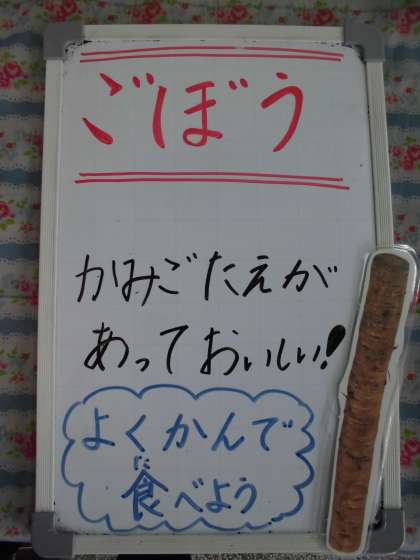 ごぼう
かみごたえが
あっておいしい!
よくかんで
食べよう